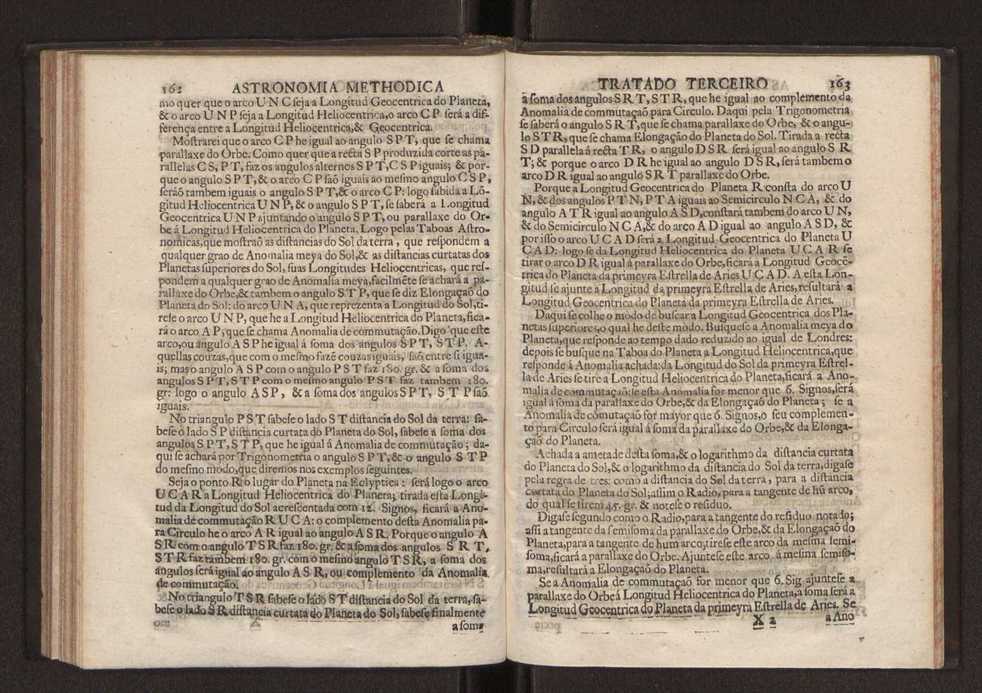 162 ASTRONOMIA METHODICA
mo quer que o arco U N C seja a Longitud Geocentrica do Planeta,
& o arco U N P seja a Longitud Heliocentrica, o arco C P será a dif-
ferença entre a Longitud Heliocentrica, & Geocentrica.
Mostrarei que o arco C P he igual ao angulo S P T, que se chama
parallaxe do Orbe. Como quer que a recta S P produzida corte as pa-
rallelas C S, P T, faz os angulos alternos S P T, C S P iguais; & por-
que o angulo S P T, & o arco C P saõ iguais ao mesmo angulo C S P,
seráõ tambem iguais o angulo S P T, & o arco C P: logo sabida a Lõ-
gitud Heliocentrica U N P, & o angulo S P T, se saberá a Longitud
Geocentrica U N P ajuntando o angulo S P T, ou parallaxe do Or-
be á Longitud Heliocentrica do Planeta. Logo pelas Taboas Astro-
nomicas, que mostraõ as distancias do Sol da terra, que respondem a
qualquer grao de Anomalia meya do Sol, & as distancias curtatas dos
Planetas superiores do Sol, suas Longitudes Heliocentricas, que res-
pondem a qualquer grao de Anomalia meya, facilmẽte se achará a pa-
rallaxe do Orbe, & tambem o angulo S T P, que se diz Elongaçaõ do
Planeta do Sol: do arco U N A, que reprezenta a Longitud do Sol, ti-
rese o arco U N P, que he a Longitud Heliocentrica do Planeta, fica-
rá o arco A P, que se chama Anomalia de commutaçaõ. Digo que este
arco, ou angulo A S P he igual á soma dos angulos S P T, S T P. A-
quellas couzas, que com o mesmo fazẽ couzas iguais, saõ entre si igua-
is; mas o angulo A S P com o angulo P S T faz 180. gr. & a soma dos
angulos S P T, S T P com o mesmo angulo P S T faz tambem 180.
gr: logo o angulo A S P, & a soma dos angulos S P T, S T P saõ
iguais.
No triangulo P S T sabese o lado S T distancia do Sol da terra: sa-
bese o lado S P distancia curtata do Planeta do Sol, sabese a soma dos
angulos S P T, S T P, que he igual á Anomalia de commutaçaõ; da-
qui se achará por Trigonometria o angulo S P T, & o angulo S T P
do mesmo modo, que diremos nos exemplos seguintes.
Seja o ponto R o lugar do Planeta na Eclyptica: será logo o arco
U C A R a Longitud Heliocentrica do Planeta; tirada esta Longi-
tud da Longitud do Sol acrescentada com 12. Signos, ficará a Ano-
malia de commutaçaõ R U C A: o complemento desta Anomalia pa-
ra Circulo he o arco A R igual ao angulo A S R. Porque o angulo A
S R com o angulo T S R faz 180. gr. & a soma dos angulos S R T,
S T R faz tambem 180. gr. com o mesmo angulo T S R, a soma dos
angulos será igual ao angulo A S R, ou complemento da Anomalia
de commutaçaõ.
No triangulo T S R sabese o lado S T distancia do Sol da terra, sa-
bese o lado S R distancia curtata do Planeta do Sol, sabese finalmente
a soma
TRATADO TERCEIRO 163
a soma dos angulos S R T, S T R, que he igual ao complemento da
Anomalia de commutaçaõ para Circulo. Daqui pela Trigonometria
se saberá o angulo S R T, que se chama parallaxe do Orbe, & o angu-
lo S T R, que se chama Elongaçaõ do Planeta do Sol. Tirada a recta
S D parallela á recta T R, o angulo D S R será igual ao angulo S R
T; & porque o arco D R he igual ao angulo D S R, será tambem o
arco D R igual ao angulo S R T parallaxe do Orbe.
Porque a Longitud Geocentrica do Planeta R consta do arco U
N, & dos angulos P T N, P T A iguais ao Semicirculo N C A, & do
angulo A T R igual ao angulo A S D, constará tambem do arco U N,
& do Semicirculo N C A, & do arco A D igual ao angulo A S D, &
por isso o arco U C A D será a Longitud Geocentrica do Planeta U
C A D: logo se da Longitud Heliocentrica do Planeta U C A R se
tirar o arco D R igual á parallaxe do Orbe, ficará a Longitud Geocẽ-
trica do Planeta da primeyra Estrella de Aries U C A D. A esta Lon-
gitud se ajunte a Longitud da primeyra Estrella de Aries, resultará a
Longitud Geocentrica do Planeta da primeyra Estrella de Aries.
Daqui se colhe o modo de buscar a Longitud Geocentrica dos Pla-
netas superiores, o qual he deste modo. Busquese a Anomalia meya do
Planeta, que responde ao tempo dado reduzido ao igual de Londres:
depois se busque na Taboa do Planeta a Longitud Heliocentrica, que
responde á Anomalia achada: da Longitud do Sol da primeyra Estrel-
la de Aries se tire a Longitud Heliocentrica do Planeta, ficará a Ano-
malia de commutaçaõ: se esta Anomalia for menor que 6. Signos, será
igual á soma da parallaxe do Orbe, & da Elongaçaõ do Planeta; se a
Anomalia de cõmutaçaõ for mayor que 6. Signos, o seu complemen-
to para Circulo será igual á soma da parallaxe do Orbe, & da Elonga-
çaõ do Planeta.
Achada a ametade desta soma, & o logarithmo da distancia curtata
do Planeta do Sol, & o logarithmo da distancia do Sol da terra, digase
pela regra de tres: como a distancia do Sol da terra, para a distancia
curtata do Planeta do Sol; assim o Radio, para a tangente de hũ arco,
do qual se tirem 45. gr. & notese o residuo.
Digase segundo como o Radio, para a tangente do residuo notado;
assi a tangente da semisoma da parallaxe do Orbe, & da Elongaçaõ do
Planeta, para a tangente de hum arco; tirese este arco da mesma semi-
soma, ficará a parallaxe do Orbe. Ajuntese este arco á mesma semiso-
ma, resultará a Elongaçaõ do Planeta.
Se a Anomalia de commutaçaõ for menor que 6. Sig. ajuntese a
parallaxe do Orbe á Longitud Heliocentrica do Planeta, a soma será a
Longitud Geocentrica do Planeta da primeyra Estrella de Aries. Se
X 2 a Ano